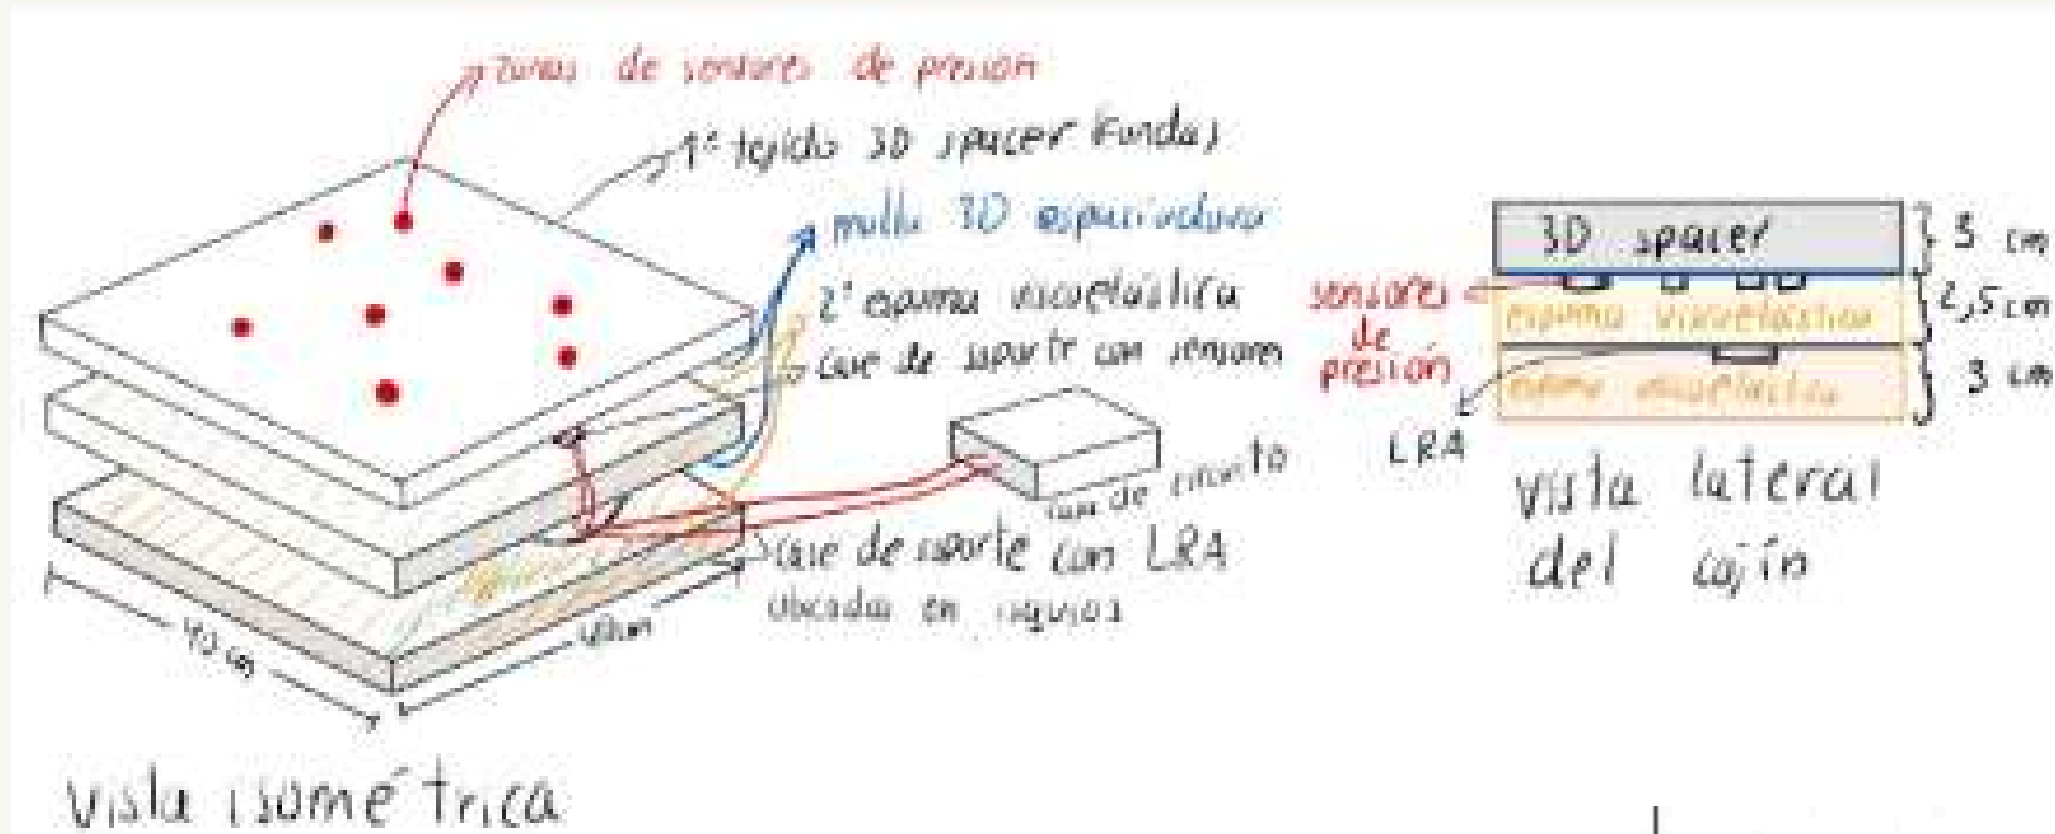 zonas de sensores de presión
1º tejido 3D spacer (Funda)
malla 3D espaciadora
2º espuma viscoelástica
case de soporte con sensores
case de circuito
case de soporte con LRA
ubicada en isquios
40 cm
40cm
vista isométrica
3D spacer
3 cm
sensores
de
presión
espuma viscoelástica
2,5 cm
espuma viscoelástica
3 cm
LRA
vista lateral
del cojín